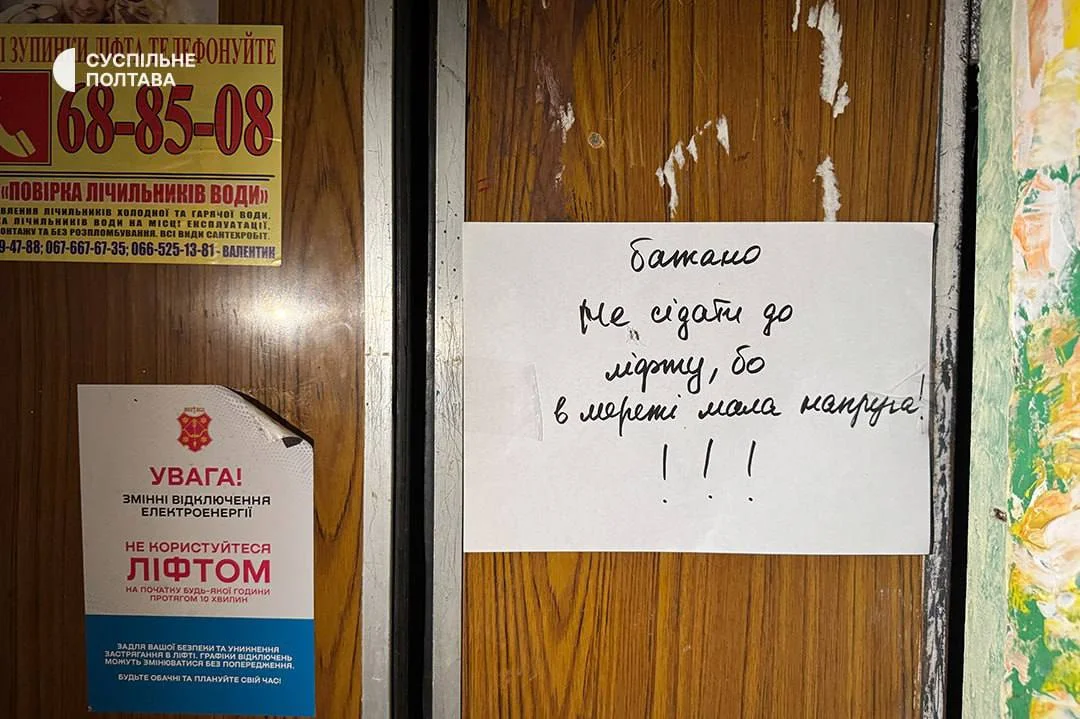 І ЗУПИНКИ ЛІФТА ТЕЛЕФОНУЙТЕ
СУСПІЛЬНЕ
ПОЛТАВА
68-85-08
«ПОВІРКА ЛІЧИЛЬНИКІВ ВОДИ»
ВЛЕННЯ ЛІЧИЛЬНИКІВ ХОЛОДНОЇ ТА ГАРЯЧОЇ ВОДИ.
КА ЛІЧИЛЬНИКІВ ВОДИ НА МІСЦІ ЕКСПЛУАТАЦІЇ.
ОНТАЖУ ТА БЕЗ РОЗПЛОМБУВАННЯ. ВСІ ВИДИ САНТЕХРОБІТ.
9-47-88; 067-667-67-35; 066-525-13-81 - ВАЛЕНТИН
УВАГА!
ЗМІННІ ВІДКЛЮЧЕННЯ
ЕЛЕКТРОЕНЕРГІЇ
НЕ КОРИСТУЙТЕСЯ
ЛІФТОМ
НА ПОЧАТКУ БУДЬ-ЯКОЇ ГОДИНИ
ПРОТЯГОМ 10 ХВИЛИН
ЗАДЛЯ ВАШОЇ БЕЗПЕКИ ТА УНИКНЕННЯ
ЗАСТРЯГАННЯ В ЛІФТІ. ГРАФІКИ ВІДКЛЮЧЕНЬ
МОЖУТЬ ЗМІНЮВАТИСЯ БЕЗ ПОПЕРЕДЖЕННЯ.
БУДЬТЕ ОБАЧНІ ТА ПЛАНУЙТЕ СВІЙ ЧАС!
бажано
не сідати до
ліфту, бо
в мережі мала напруга!
! ! !